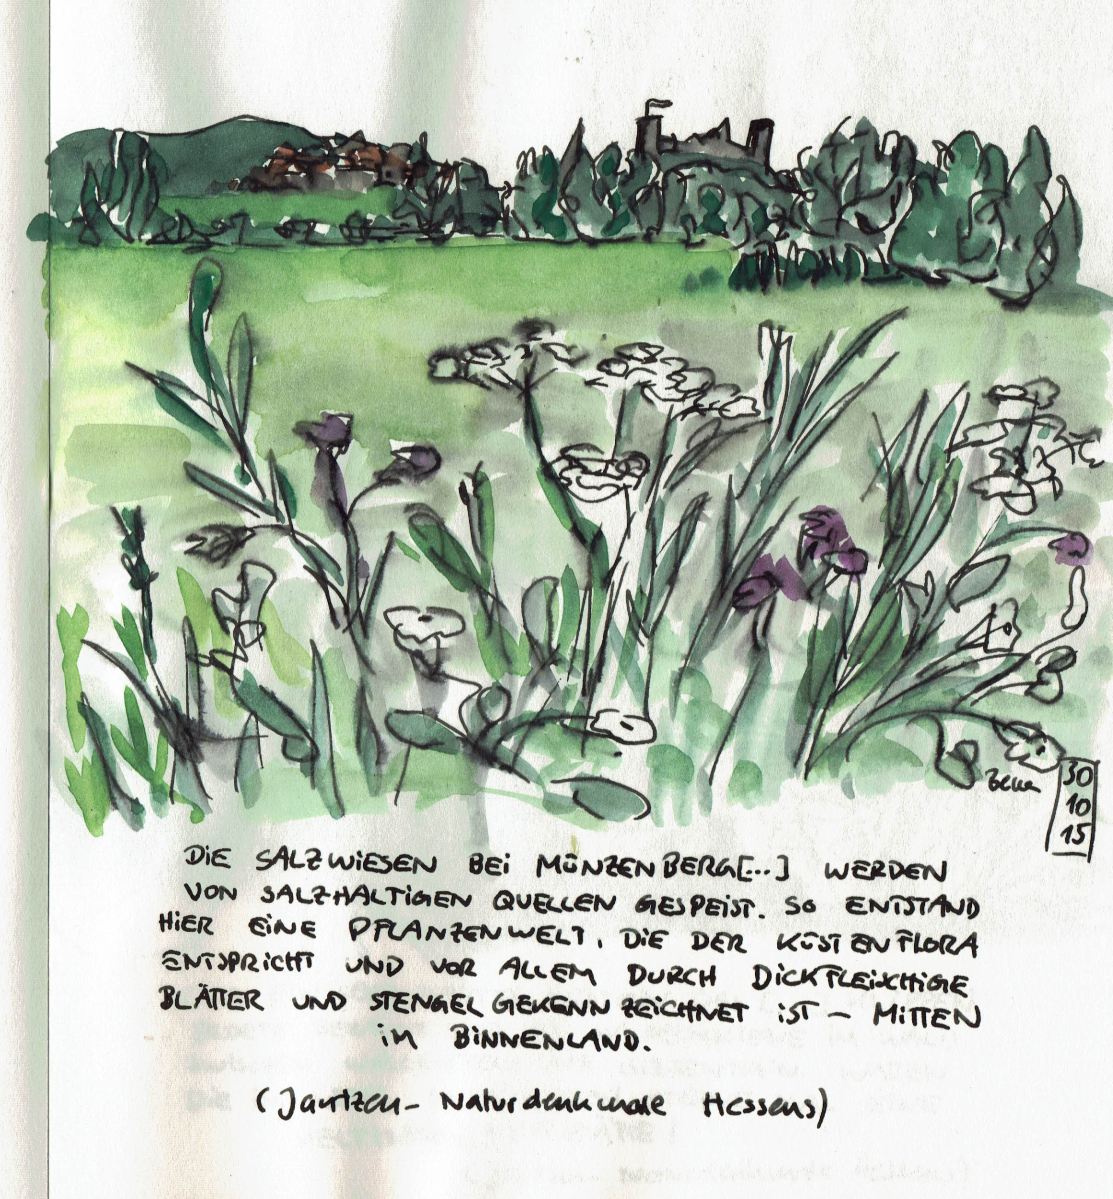 30
10
15
DIE SALZWIESEN BEI MÜNZENBERG[...] WERDEN
VON SALZHALTIGEN QUELLEN GESPEIST. SO ENTSTAND
HIER EINE PFLANZENWELT, DIE DER KÜSTENFLORA
ENTSPRICHT UND VOR ALLEM DURCH DICKFLEISCHIGE
BLÄTTER UND STENGEL GEKENNZEICHNET IST – MITTEN
IM BINNENLAND.
(Jantzen – Naturdenkmale Hessens)